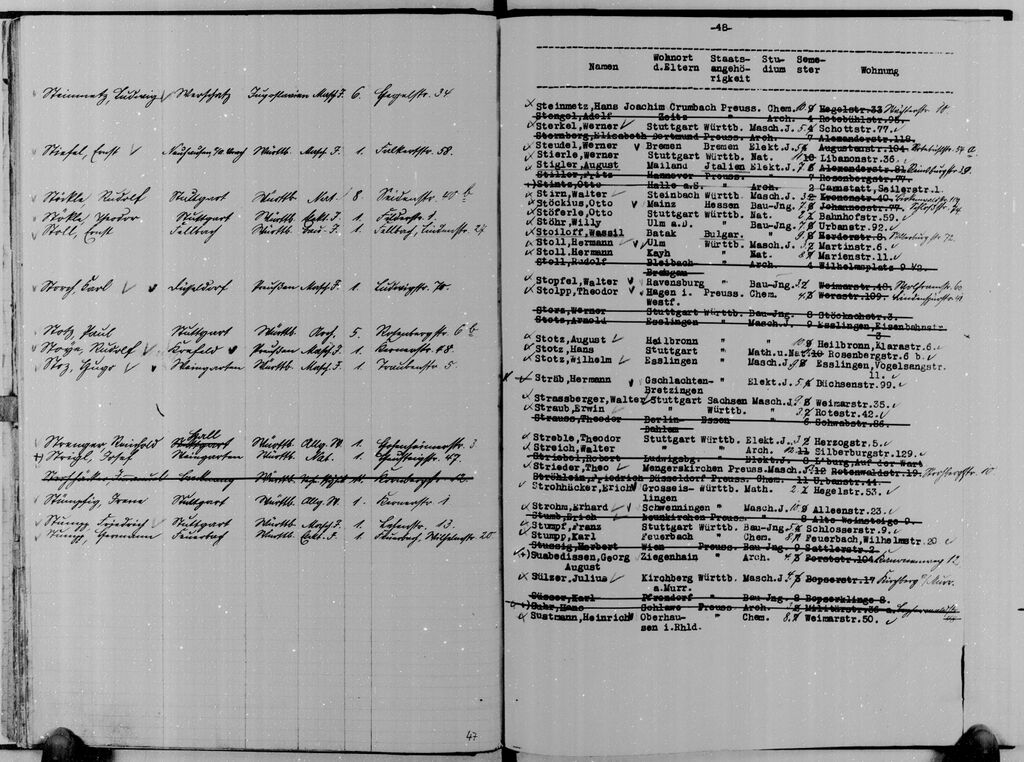 Steinmetz, Ludwig Werschetz Jugoslavien Masch.J. 6. Hegelstr. 34
Stiefel, Ernst Württb. Masch.J. 1. Falkertstr. 58.
Stöckle Rudolf Stuttgart Württb. Nat. 8. Seidenstr. 40 b
Stöckle Theodor Stuttgart Württb. Elekt.J. 1.
Stoll, Ernst Fellbach Württb. Bau.J. 1. Fellbach, Lindenstr. 24
Storch, Carl Düsseldorf Preußen Masch.J. 1. Ludwigstr.
Stotz, Paul Stuttgart Württb. Arch. 5. Rosenbergstr. 6 b
Rudolf Krefeld Preußen Masch.J. 1. Kernerstr. 48
Hugo Weingarten Württb. Masch.J. 1. Traubenstr. 5
Hall
Strenger Reinhold Stuttgart Württb. Allg.W. 1. 3
Streigl, Josef Weingarten Württb. Nat. 1. 47.
Stümpfig, Irene Stuttgart Württb. Allg.W. 1. Kernerstr. 1
Stumpp, Friedrich Stuttgart Württb. Masch.J. 1. 13.
Stumpp, Hermann Feuerbach Württb. Elekt.J. 1. Feuerbach, Wilhelmstr. 20
47
-48-
Namen Wohnort d.Eltern Staats-angehö-rigkeit Stu-dium Seme-ster Wohnung
Steinmetz,Hans Joachim Crumbach Preuss. Chem. 10 Hegelstr.33
Stengel,Adolf Zeitz " Arch. 4 Rotebühlstr.95.
Sterkel,Werner Stuttgart Württb. Masch.J. 5 Schottstr.77.
Sternberg,Elisabeth Dortmund Preuss. Arch. 7 Alexanderstr.118.
Steudel,Werner Bremen Bremen Elekt.J. 5 Augustenstr.104 Rotebühlstr. 54 a.
Stierle,Werner Stuttgart Württb. Nat. 10 Libanonstr.36.
Stigler,August Mailand Italien Elekt.J. 7 Alexanderstr.81
Stiller,Fritz Hannover Preuss. " 7 Rosenbergstr.77.
Stintz,Otto Halle a.S. " Arch. 2 Cannstatt,Seilerstr.1.
Stirn,Walter Steinbach Württb. Masch.J. Kronenstr.40.
Stöckius,Otto Mainz Hessen Bau-Jng. 7 Johannesstr.77. Schloßstr. 74
Stöferle,Otto Stuttgart Württb. Nat. Bahnhofstr.59.
Stöhr,Willy Ulm a.J. " Bau-Jng. 7 Urbanstr.92.
Stoiloff,Wassil Batak Bulgar. " 9 Herderstr.8. Silberburgstr. 72.
Stoll,Hermann Ulm Württb. Masch.J. 3 Martinstr.6.
Stoll,Hermann Kayh " Nat. 8 Marienstr.11.
Stoll,Rudolf Bleibach " Arch. 4 Wilhelmsplatz 9 ½.
Breisgau
Stopfel,Walter Ravensburg " Bau-Jng. 3 Weimarstr.40. Wolframstr. 60
Stolpp,Theodor Hagen i. Preuss. Chem. 4 Werastr.109.
Westf.
Storz,Werner Stuttgart Württb. Bau-Jng. 8 Stöckachstr.3.
Stotz,Arnold Esslingen " Masch.J. 9 Esslingen,Eisenbahnstr
3.
Stotz,August Heilbronn " " 10 Heilbronn,Klarastr.6.
Stotz,Hans Stuttgart " Math.u.Nat. 10 Rosenbergstr.6 b.
Stotz,Wilhelm Esslingen " Masch.J. 9 Esslingen,Vogelsangstr.
11.
Ströb,Hermann Gschlachten- " Elekt.J. 5 Büchsenstr.99.
Bretzingen
Strassberger,Walter Stuttgart Sachsen Masch.J. 9 Weimarstr.35.
Straub,Erwin " Württb. " 3 Rotestr.42.
Strauss,Theodor Berlin- Essen " 6 Schwabstr.86.
Dahlem
Streble,Theodor Stuttgart Württb. Elekt.J. 3 Herzogstr.5.
Streich,Walter " " Arch. 12 11 Silberburgstr.129.
Striebel,Robert Ludwigsbg. " Elekt.J. 8 L'burg,Auf der Wart
Strieder,Theo Mengerskirchen Preuss. Masch.J. 12 Rotenwaldstr.19. 10
Ströhlein,Friedrich Düsseldorf Preuss. Chem. 11 Urbanstr.44.
Strohhäcker,Erich Grosseis- Württb. Math. 2 Hegelstr.53.
lingen
Strohm,Erhard Schwenningen " Masch.J. 10 Alleenstr.23.
Stumb,Erich Neunkirchen Preuss. " 8 Alte Weinsteige 9.
Stumpf,Franz Stuttgart Württb. Bau-Jng. 5 Schlosserstr.9.
Stumpp,Karl Feuerbach " Chem. 8 Feuerbach,Wilhelmstr.20
Stussig,Herbert Wien Preuss. Bau-Jng. 9 Sattlerstr.2.
Suabedissen,Georg Ziegenhain " Arch. 4 Forststr.104
August
Sülzer,Julius Kirchberg Württb. Masch.J. 4 Bopserstr.17
a.Murr.
Süsser,Karl Pfrondorf " Bau-Jng. 8 Bopserklinge 8.
Suhr,Hans Schlawe Preuss. Arch. 3 Militärstr.36 a.
Sustmann,Heinrich Oberhau- " Chem. 8 Weimarstr.50.
sen i.Rhld.